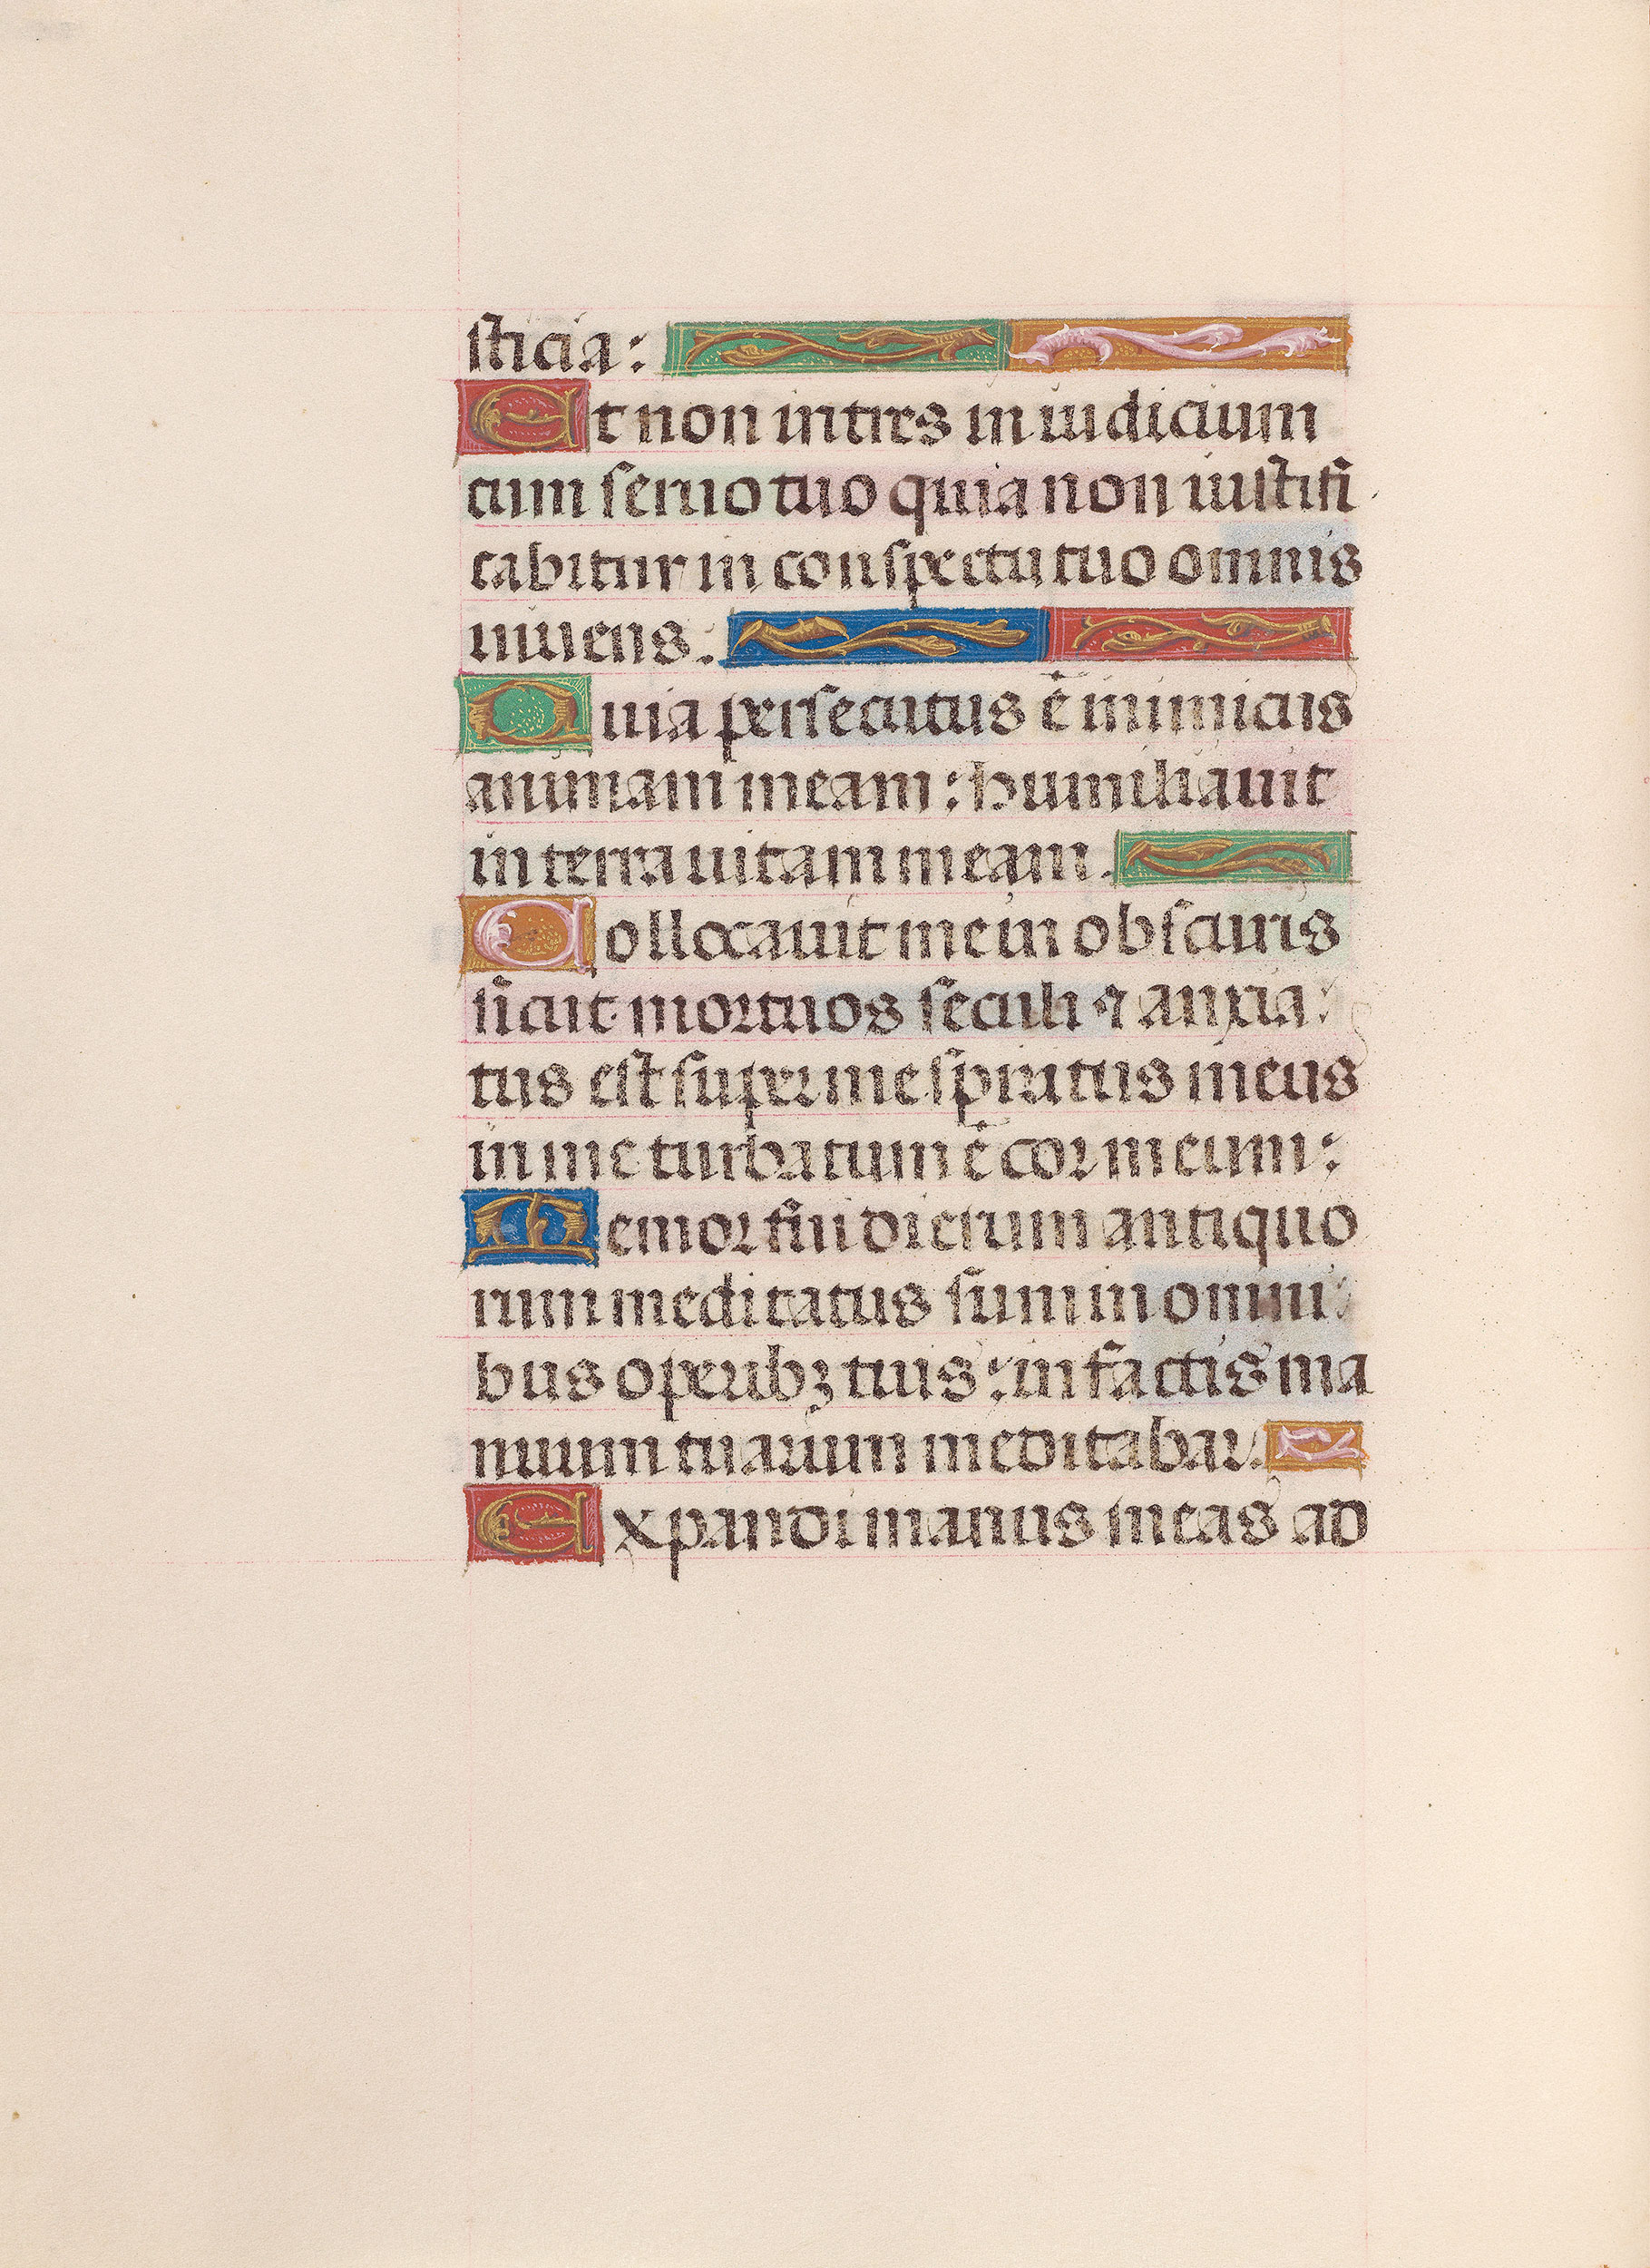 sticia:
Et non intres in iudicium
cum seruo tuo quia non iustifi
cabitur in conspectu tuo omnis
uiuens:
Quia persecutus ē inimicus
animam meam: humiliauit
in terra uitam meam.
Collocauit me in obscuris
sicut mortuos seculi ⁊ anxia
tus est super me spiritus meus
in me turbatum ē cor meum:
Memor fui dierum antiquo
rum meditatus sum in omni
bus operibꝫ tuis: in factis ma
nuum tuarum meditabar.
Expandi manus meas ad